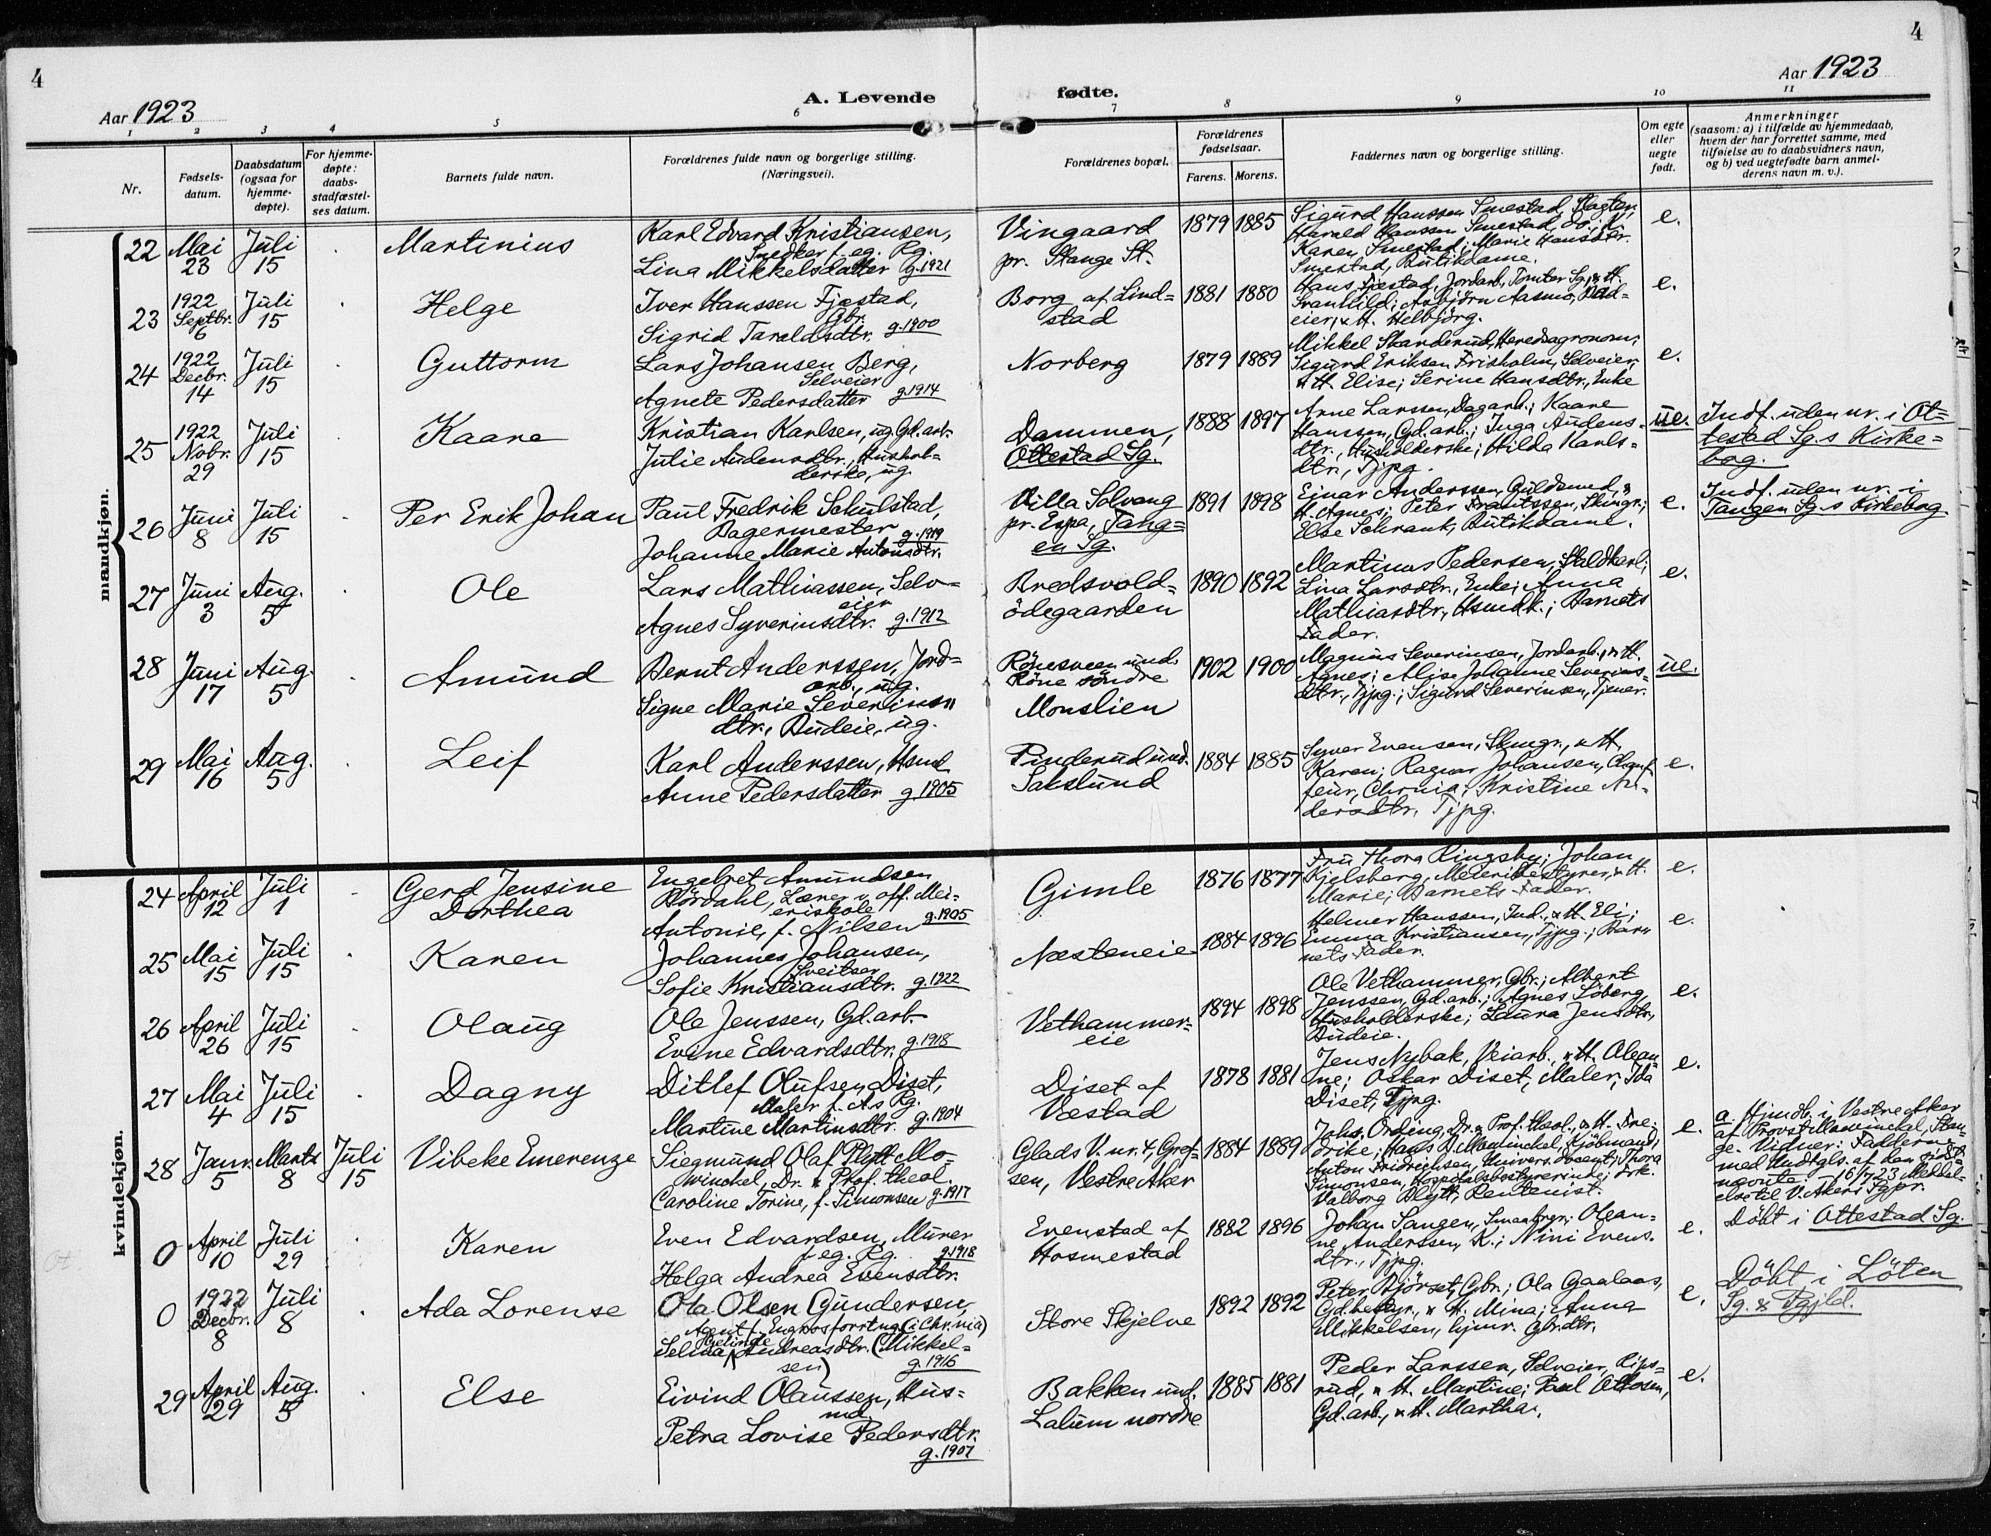 4
4
Aar 1923
A. Levende
fødte.
Aar 1923
1 2 3 4 5 6 7 8 9 10 11
Nr.
Fødsels-
datum.
Daabsdatum
(ogsaa for
hjemme-
døpte).
For hjemme-
døpte:
daabs-
stadfæstel-
ses datum.
Barnets fulde navn.
Forældrenes fulde navn og borgerlige stilling.
(Næringsvei).
Forældrenes bopæl.
Forældrenes
fødselsaar.
Farens. Morens.
Faddernes navn og borgerlige stilling.
Om egte
eller
uegte
født.
Anmerkninger
(saasom: a) i tilfælde av hjemmedaab,
hvem der har forrettet samme, med
tilføielse av to daabsvidners navn,
og b) ved uegtefødte barn anmel-
derens navn m. v.).
mandkjøn.
22 Mai 23
Juli 15
Martinius
Karl Edvard Kristiansen,
Snedker f. eg. Rg.
Lina Mikkelsdatter g. 1921
Vingaard
pr. Stange St.
1879 1885
Sigurd Hanssen Smestad, Slagter,
Harald Hanssen Smestad,
Karen Smestad; Marie Hansdtr.
Smestad, Butikdame.
e.
23 1922 Septbr. 6
Juli 15
Helge
Iver Hanssen Fjæstad,
Gbr.
Sigrid Taraldsdtr. g. 1900
Borg af Lind-
stad
1881 1880
Hans Fjæstad, Jordarb., Tomter Sg., & H.
Svanhild; Asbjørn Aasmo,
eier, & H. Helbjörg.
e.
24 1922 Decbr. 14
Juli 15
Guttorm
Lars Johansen Berg,
Selveier
Agnete Pedersdatter g. 1914
Norberg
1879 1889
Mikkel Skanderud, Heredsagronom;
Sigurd Eriksen Frisholm, Selveier,
& H. Elise; Serine Hansdtr., Enke
e.
25 1922 Nobr. 29
Juli 15
Kaare
Kristian Karlsen, ug. Gd. arb.
Julie Audensdtr., Hushol-
derske, ug.
Dammen,
Ottestad Sg.
1888 1897
Arne Larssen, Dagarb.; Kaare
Hanssen, Gd. arb.; Inga Audens-
dtr., Husholderske; Hilda Karls-
dtr., Tjpg.
ue.
Indf. uden nr. i Ot-
testad Sg.s Kirke-
bog.
26 Juni 8
Juli 15
Per Erik Johan
Paul Fredrik Schulstad,
Bagermester g. 1919
Johanne Marie Antonsdtr.
Villa Solvang
pr. Espa, Tang-
en Sg.
1891 1898
Einar Anderssen, Guldsmed, &
H. Agnes; Peter Frantssen, Skingr.;
Else Schrank, Butikdame.
e.
Indf. uden nr. i
Tangen Sg.s Kirkebog.
27 Juni 3
Aug. 5
Ole
Lars Mathiassen, Selv-
eier
Agnes Syverinsdtr. g. 1912
Bredsvold-
ödegaarden
1890 1892
Martinus Pedersen, Staldkarl;
Lina Larsdtr., Enke; Anna
Mathiasdtr., Hsmdk.; Barnets
Fader.
e.
28 Juni 17
Aug. 5
Amund
Bernt Anderssen, Jord-
arb., ug.
Signe Marie Severins-
dtr., Budeie, ug.
Rönesveen und.
Röne söndre
Monslien
1902 1900
Magnus Severinsen, Jordarb., & H.
Agnes; Alise Johanne Severins-
dtr., Tjpg.; Sigurd Severinsen, Tjener.
ue.
29 Mai 16
Aug. 5
Leif
Karl Anderssen, Hsmd.
Anne Pedersdatter g. 1905
Pinderud und.
Sakslund
1884 1885
Syver Evensen, Skingr., & H.
Karen; Ragnar Johansen, Chauf-
feur, Chrnia; Kristine An-
dersdtr. Tjpg.
e.
kvindekjøn.
24 April 12
Juli 1
Gerd Jensine
Dorthea
Engebret Amundsen
Bördahl, Lærer v. off. Mei-
eriskole g. 1905
Antonie, f. Nilsen
Gimle
1876 1877
Fru Thora Ringsby; Johan
Kjelsberg, Meieribestyrer, & H.
Marie; Barnets Fader.
e.
25 Mai 15
Juli 15
Karen
Johannes Johansen,
Sveitser
Sofie Kristiansdtr. g. 1922
Næsteneie
1884 1896
Helmer Hanssen, Ind., & H. Eli;
Emma Kristiansen, Tjpg.; Bar-
nets Fader.
e.
26 April 26
Juli 15
Olaug
Ole Jenssen, Gd. arb.
Evine Edvardsdtr. g. 1918
Vethammer-
eie
1894 1898
Ole Vethammer, Gbr.; Albert
Jenssen, Gd. arb.; Agnes Löberg,
Husholderske; Laura Jensdtr.,
Budeie.
e.
27 Mai 4
Juli 15
Dagny
Ditlef Olufsen Diset,
Maler f. A.s Rg.
Martine Martinsdtr. g. 1904
Diset af
Væstad
1878 1881
Jens Nybak, Veiarb., & H. Olean-
ne; Oskar Diset, Maler; Ida
Diset, Tjpg.
e.
28 Janr. 5
Marts 8
Juli 15
Vibeke Emerenze
Siegmund Olaf Plytt Mo-
winckel, Dr. & Prof. theol.
Caroline Torine, f. Simonsen g. 1917
Glads V. nr. 4, Gref-
sen, Vestre Aker
1884 1889
Johs. Ording, Dr. & Prof. theol., & H. Fre-
drike; Hans D. Mowinckel, Kjöbmand;
Anton Fridrichsen, Univers. Docent; Thora
Simonsen, Hospitalsbestyrerinde; Frk.
Valborg Blytt, Rentenist.
e.
a. Hjmdb. i Vestre Aker
af Provst Mowinckel, Stan-
ge. Vidner: Fadderne
med Undtgls. af den sidst
nævnte. 16/7 23 Meddel-
else til V. Akers Sgpr.
0 April 10
Juli 29
Karen
Even Edvardsen, Murer
f. eg. Rg. g. 1918
Helga Andrea Evensdtr.
Evenstad af
Hosmestad
1882 1896
Johan Sangen, Smaabrgr.; Olean-
ne Anderssen, K.; Nini Evens-
dtr., Tjpg.
e.
Döbt i Ottestad Sg.
Ot.
0 1922 Decbr. 8
Juli 8
Ada Lorense
Ola Olsen Gundersen,
Agent f. Engrosforretng. (i Chr.nia)
Selma Gelinde Andreasdtr. (Mikkel-
sen) g. 1916
Store Skjelve
1892 1892
Peter Björset, Gbr.; Ola Gaalaas,
Gdbestyr., & H. Mina; Anna
Mikkelsen, hjmv. Gbr.dtr.
e.
Döbt i Löten
Sg. & Pgjld.
29 April 29
Aug. 5
Else
Eivind Olaussen, Hus-
md.
Petra Lovise Pedersdtr.
g. 1907
Bakken und.
Lalum nordre
1885 1881
Peder Larssen, Selveier, Rips-
rud, & H. Martine; Paul Ottosen,
Gd. arb., & H. Martha.
e.